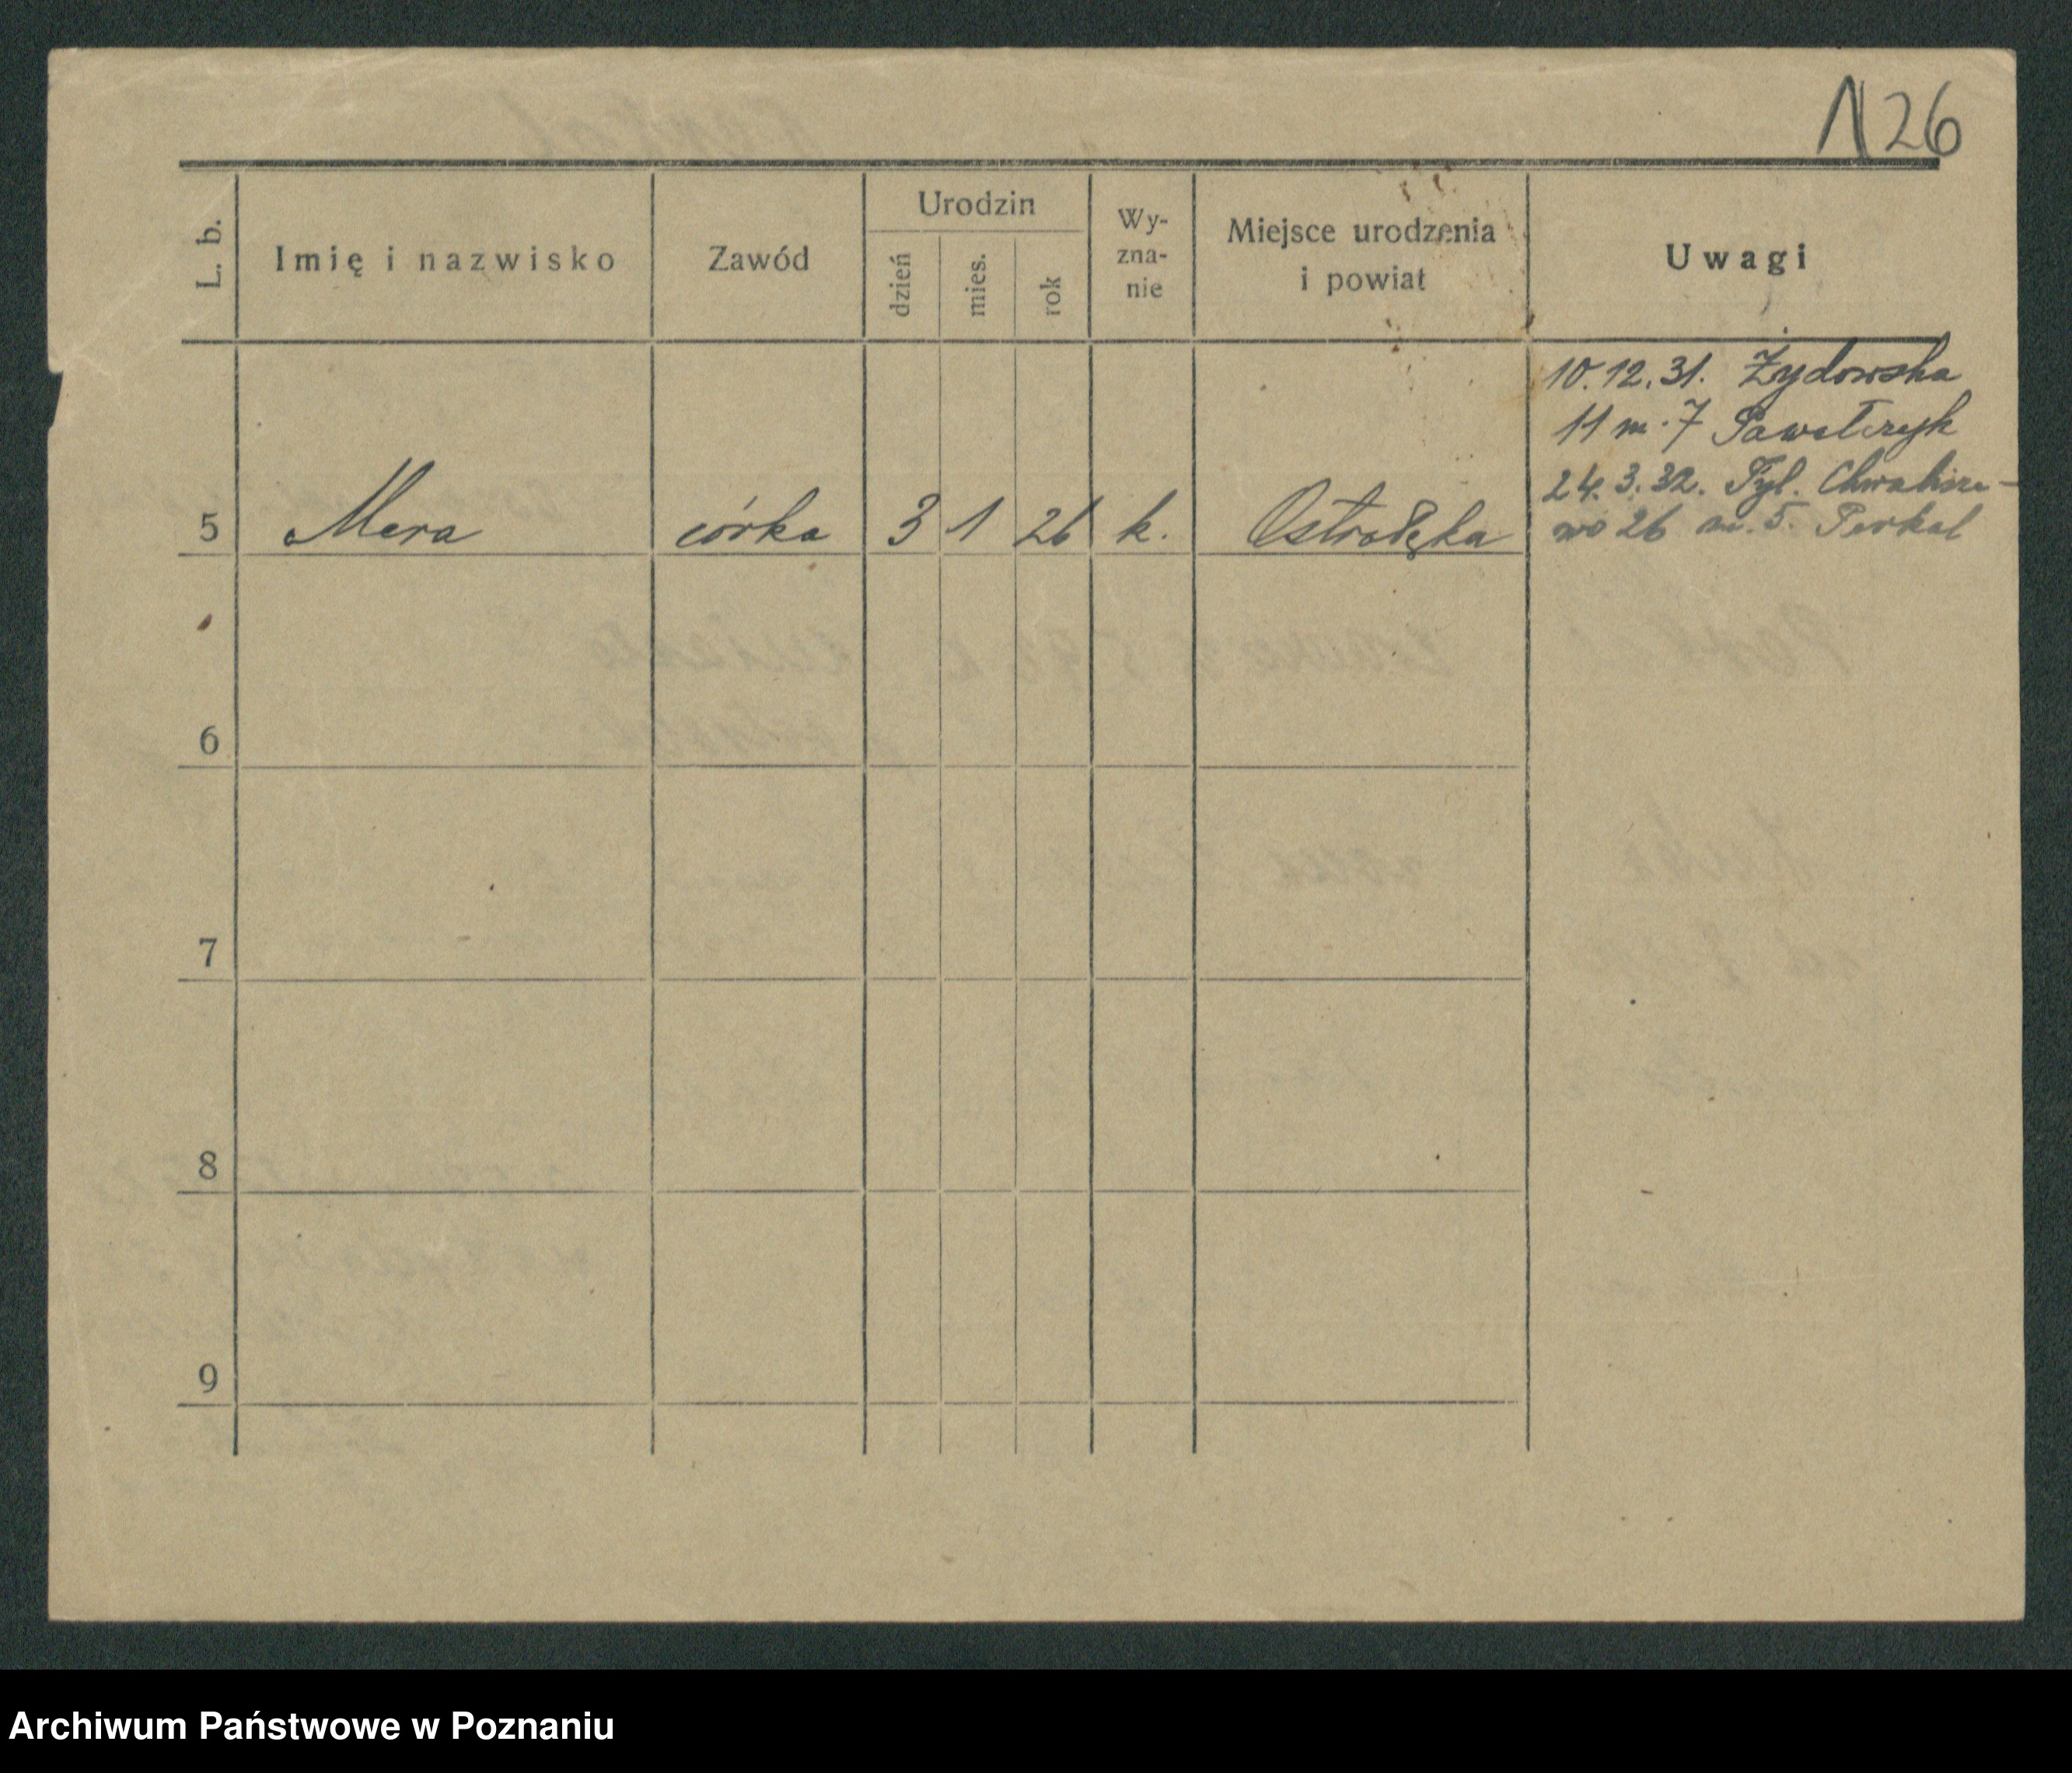 126
L. b.
Imię i nazwisko
Zawód
Urodzin
dzień
mies.
rok
Wy-
zna-
nie
Miejsce urodzenia
i powiat
Uwagi
10.12.31. Żydowska
11 m. 7 Pawełczyk
24.3.32. Tyl. Chwalisze-
wo 26 m. 5. Perkal
5 Mera córka 3 1 26 k. Ostrołęka
6
7
8
9
Archiwum Państwowe w Poznaniu